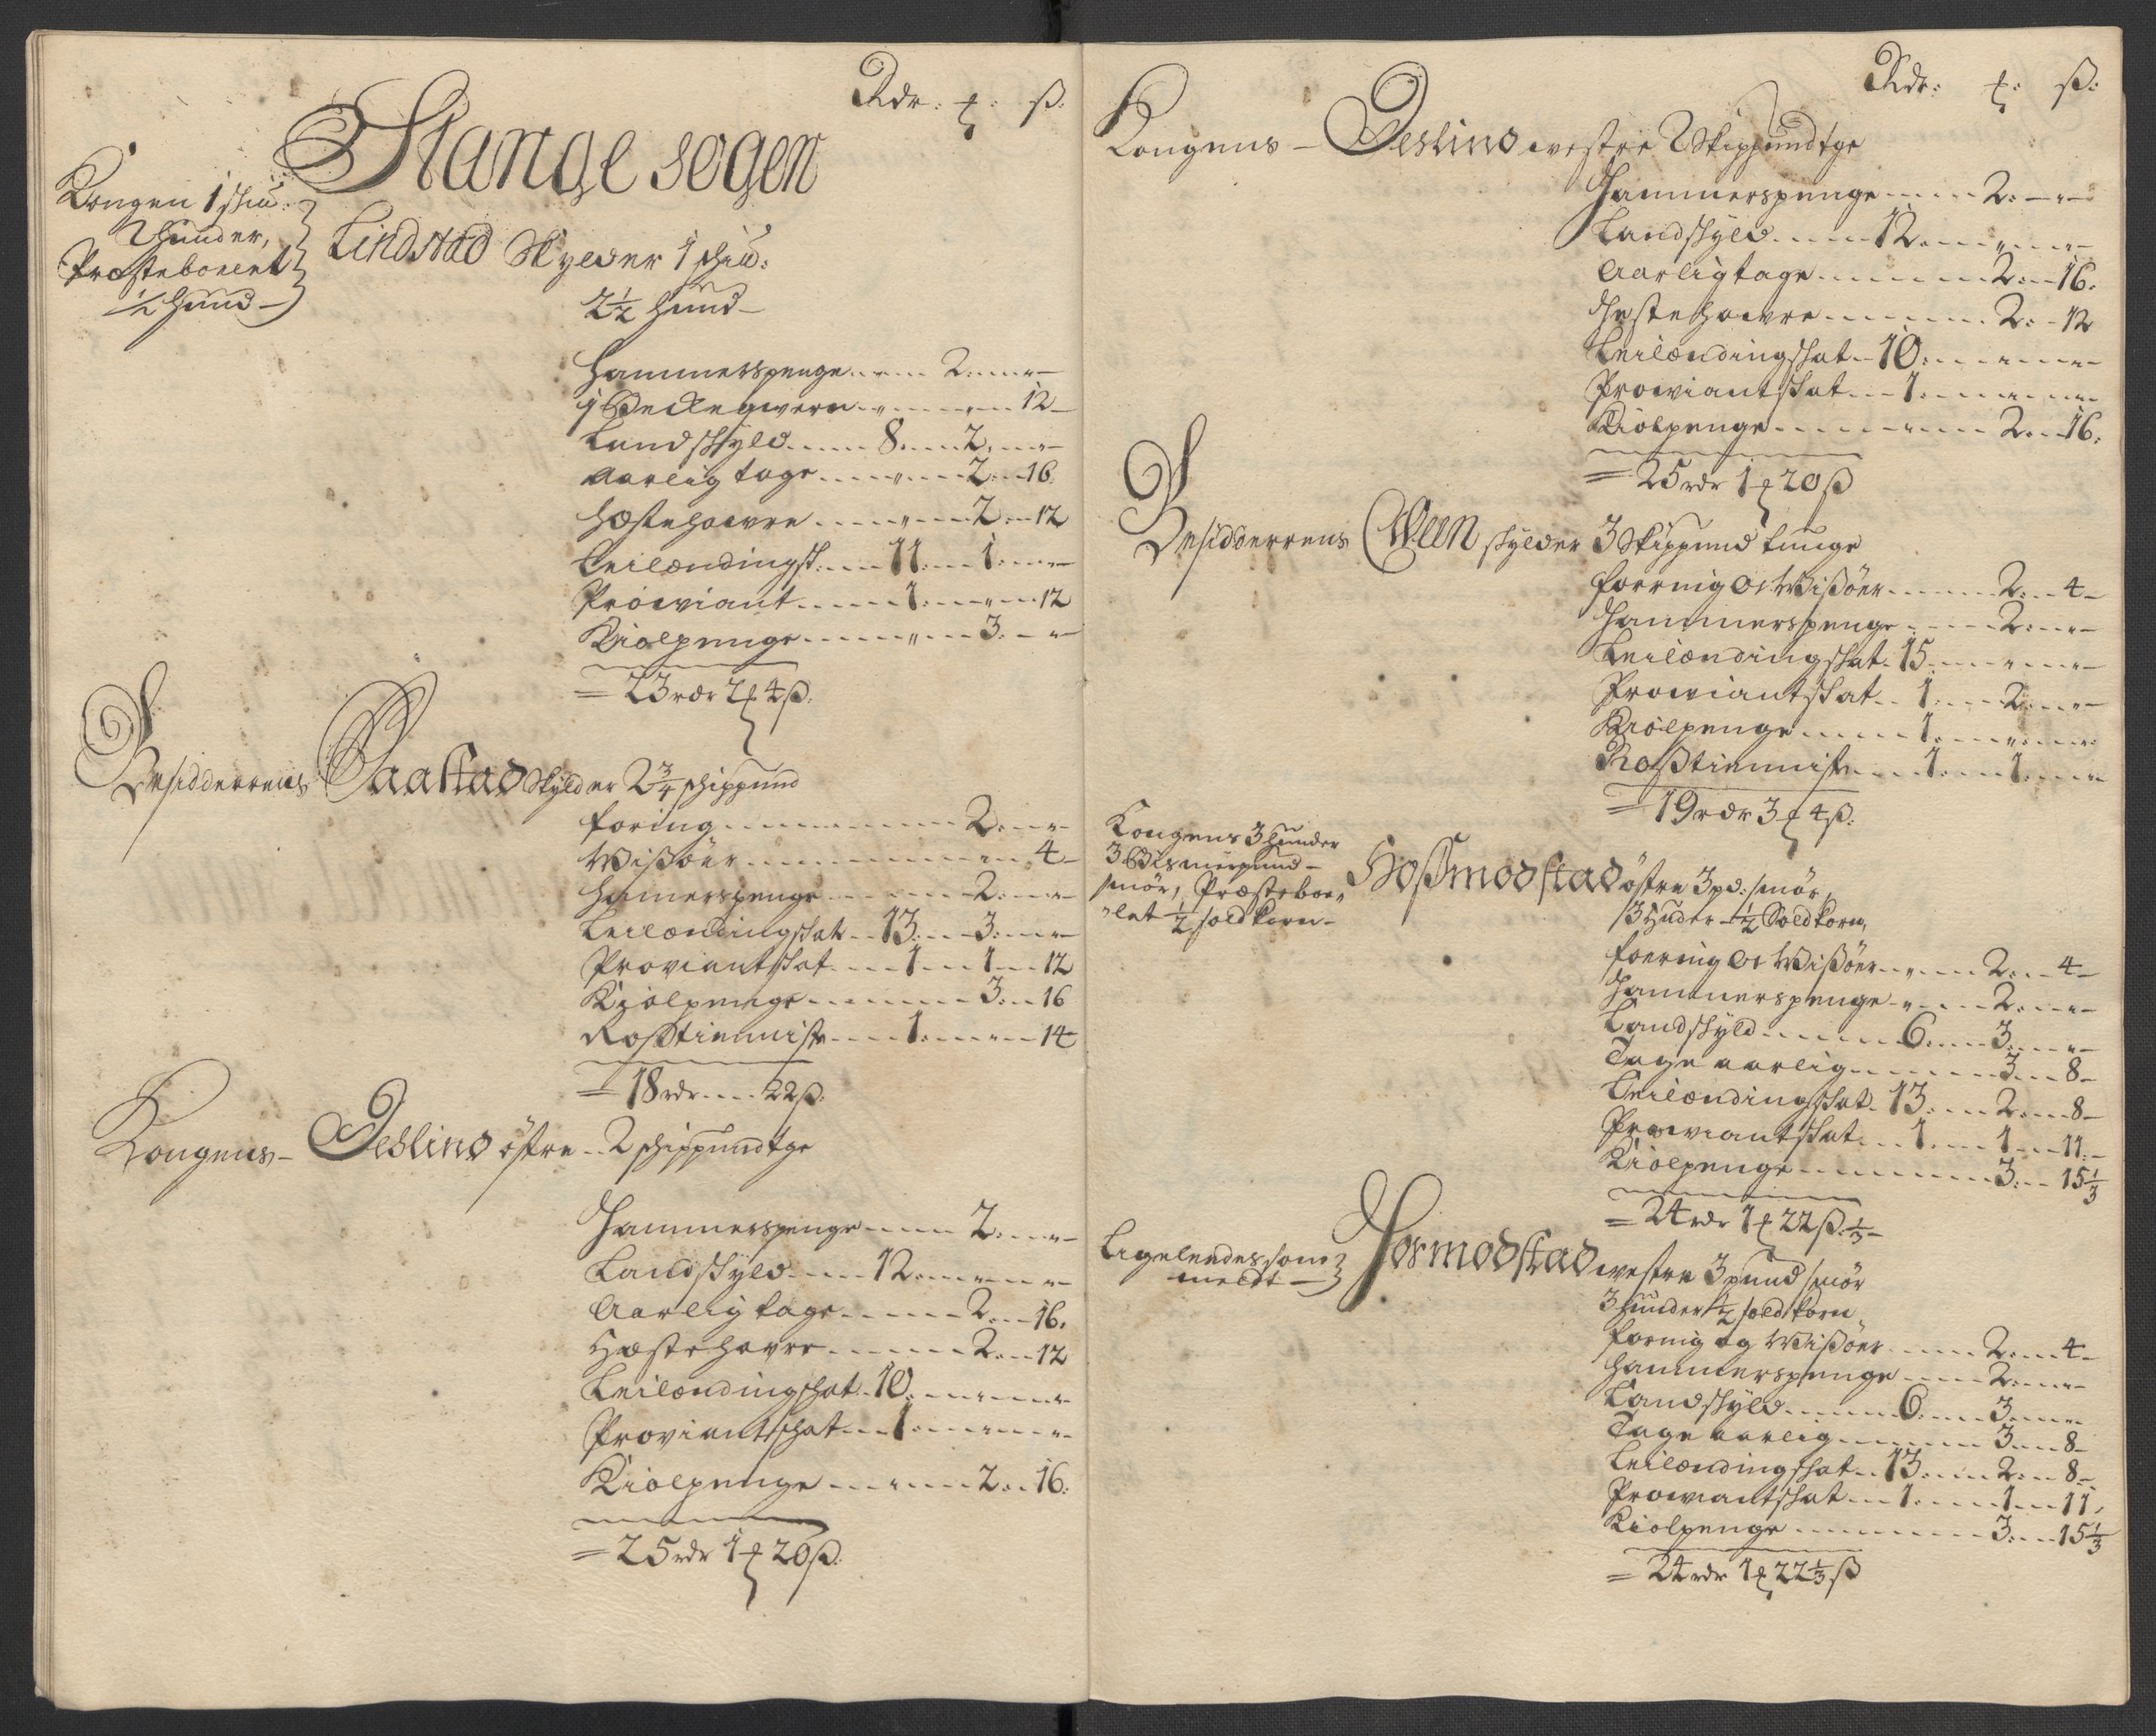 Rdr: ℔: ß:
Stange sogen
Kongen 1 skiu:
2 hunder,
Præstebolent
½ hund -
Lindstad Skylder 1 skiu:
2½ hund -
Hammerspenge 2. - -
1 Beckeqwern 12 -
Landskyld 8. 2. -
Aarlig tage 2. 16.
Hæstehawre 2. 12
Leilændingsk. 11. 1. -
Prowiant 1. - 12
Kiolpenge 3. - -
= 23 rdr 2 ℔ 4 ß.
Besidderens Saastad Skylder 2¾ skippund
foring 2. - -
Wißöer 4 -
Hamerspenge 2. - -
Leilændingskat 13. 3. -
Proviantskat 1. 1. 12
Kiölpenge 3. 16
Roßtienniste 1. - 14
= 18 rdr. - 22 ß.
Kongens - Jeslind östre 2 skippundtge
Hammerspenge 2. - -
Landskyld 12. - -
Aarlig tage 2. 16.
Hæstehavre 2. 12
Leilændingskat 10. - -
Proviantskat 1. - -
Kiolpenge 2. 16.
= 25 rdr 1 ℔ 20 ß.
Rdr: ℔: ß:
Kongens - Jeslind westre 2 Skippundtge
Hammerspenge 2. - -
Landskyld 12. - -
Aarlig tage 2. 16.
Hestehawre 2. 12
Leilændingskat 10. - -
Prowiantskat 1. - -
Kiolpenge 2. 16.
= 25 rdr 1 ℔ 20 ß
Besidderens Ween skylder 3 Skippund tunge
foering och Wißöer 2. 4 -
Hammerspenge 2. - -
Leilændingskat 15. - -
Prowiantskat 1. 2. -
Kiölpenge 1. - -
Roßtienniste 1. 1. -
= 19 rdr 3 ℔ 4 ß.
Kongens 3 hunder
3 Bismerpund -
smör, Præsteboe„
„let ½ sold korn -
Hoßmodstad östre 3 pd: smör,
3 Huder - ½ Sold korn,
foering och Wißöer 2. 4 -
Hammerspenge 2. - -
Landskyld 6. 3. -
Tage aarlig 3. 8 -
Leilændingskat 13. 2. 8 -
Prowiantskat 1. 1. 11. -
Kiolpenge 3. 15⅓
= 24 rdr 1 ℔ 22 ß ⅓ -
Ligeledes som
meldt -
Hosmodstad westre 3 pund smör
3 Hunder ½ sold korn
foring og Wißöer 2. 4 -
Hammerspenge 2. - -
Landskyld 6. 3. -
Tage aarlig 3. 8 -
Leilændingskat 13. 2. 8 -
Prowiantskat 1. 1. 11,
Kiolpenge 3. 15⅓
= 24 rdr 1 ℔ 22⅓ ß